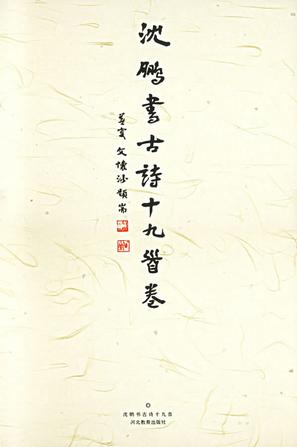 沈鹏书古诗十九首卷
庚寅文怀沙题耑
沈鹏书古诗十九首
河北教育出版社